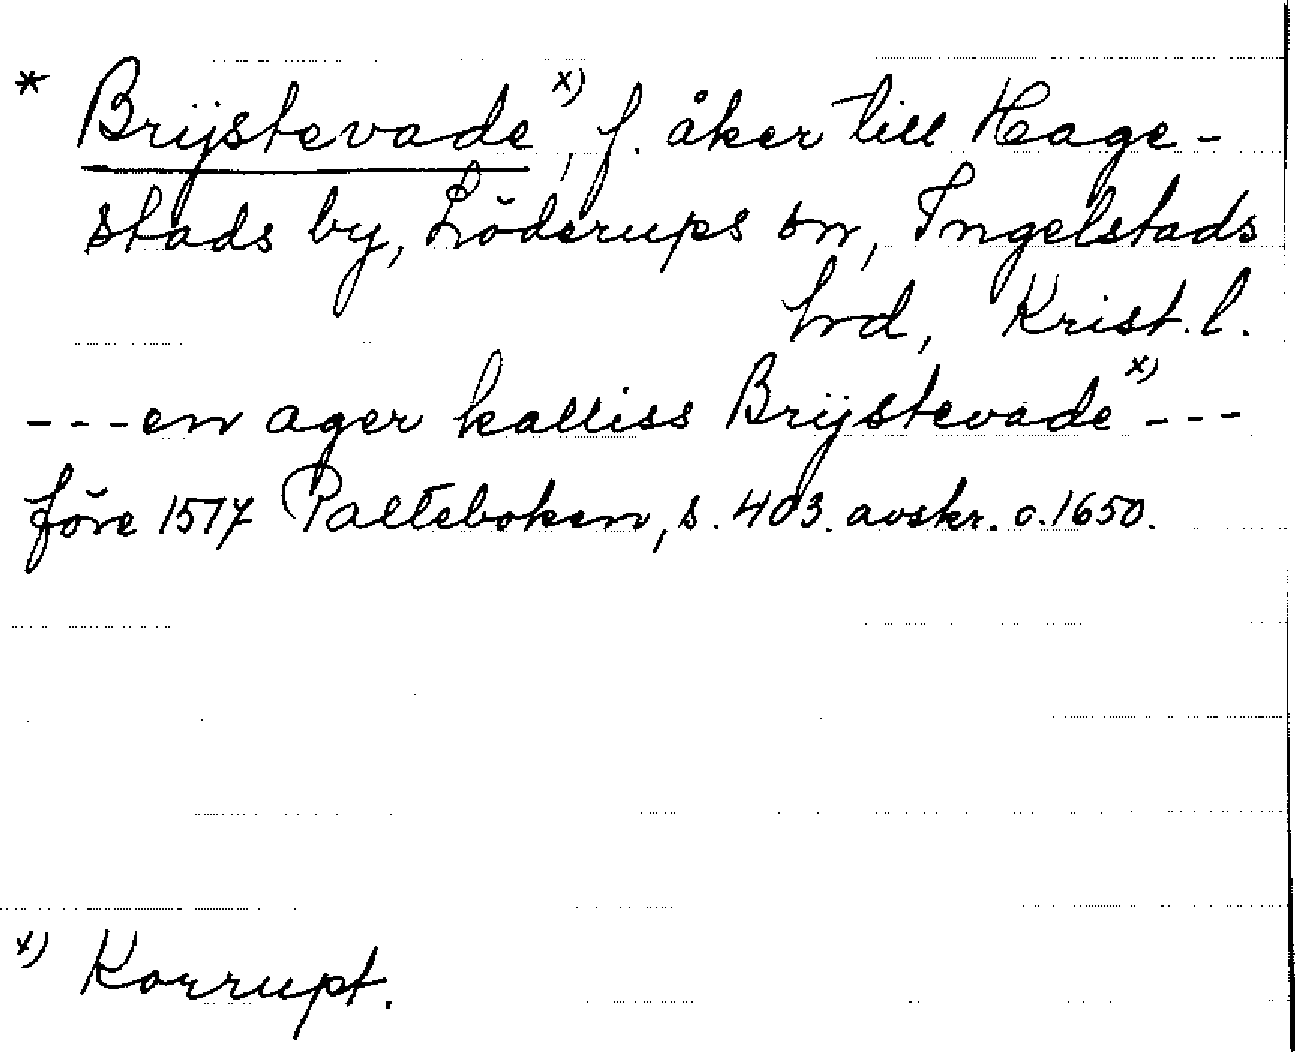 * Brijstevade x), f. åker till Hage-
stads by, Löderups sn, Ingelstads
hrd, Krist. l.
---en ager kalliss Brijstevade x)---
före 1517 Palteboken, s. 403. avskr. c. 1650.
x) Korrupt.